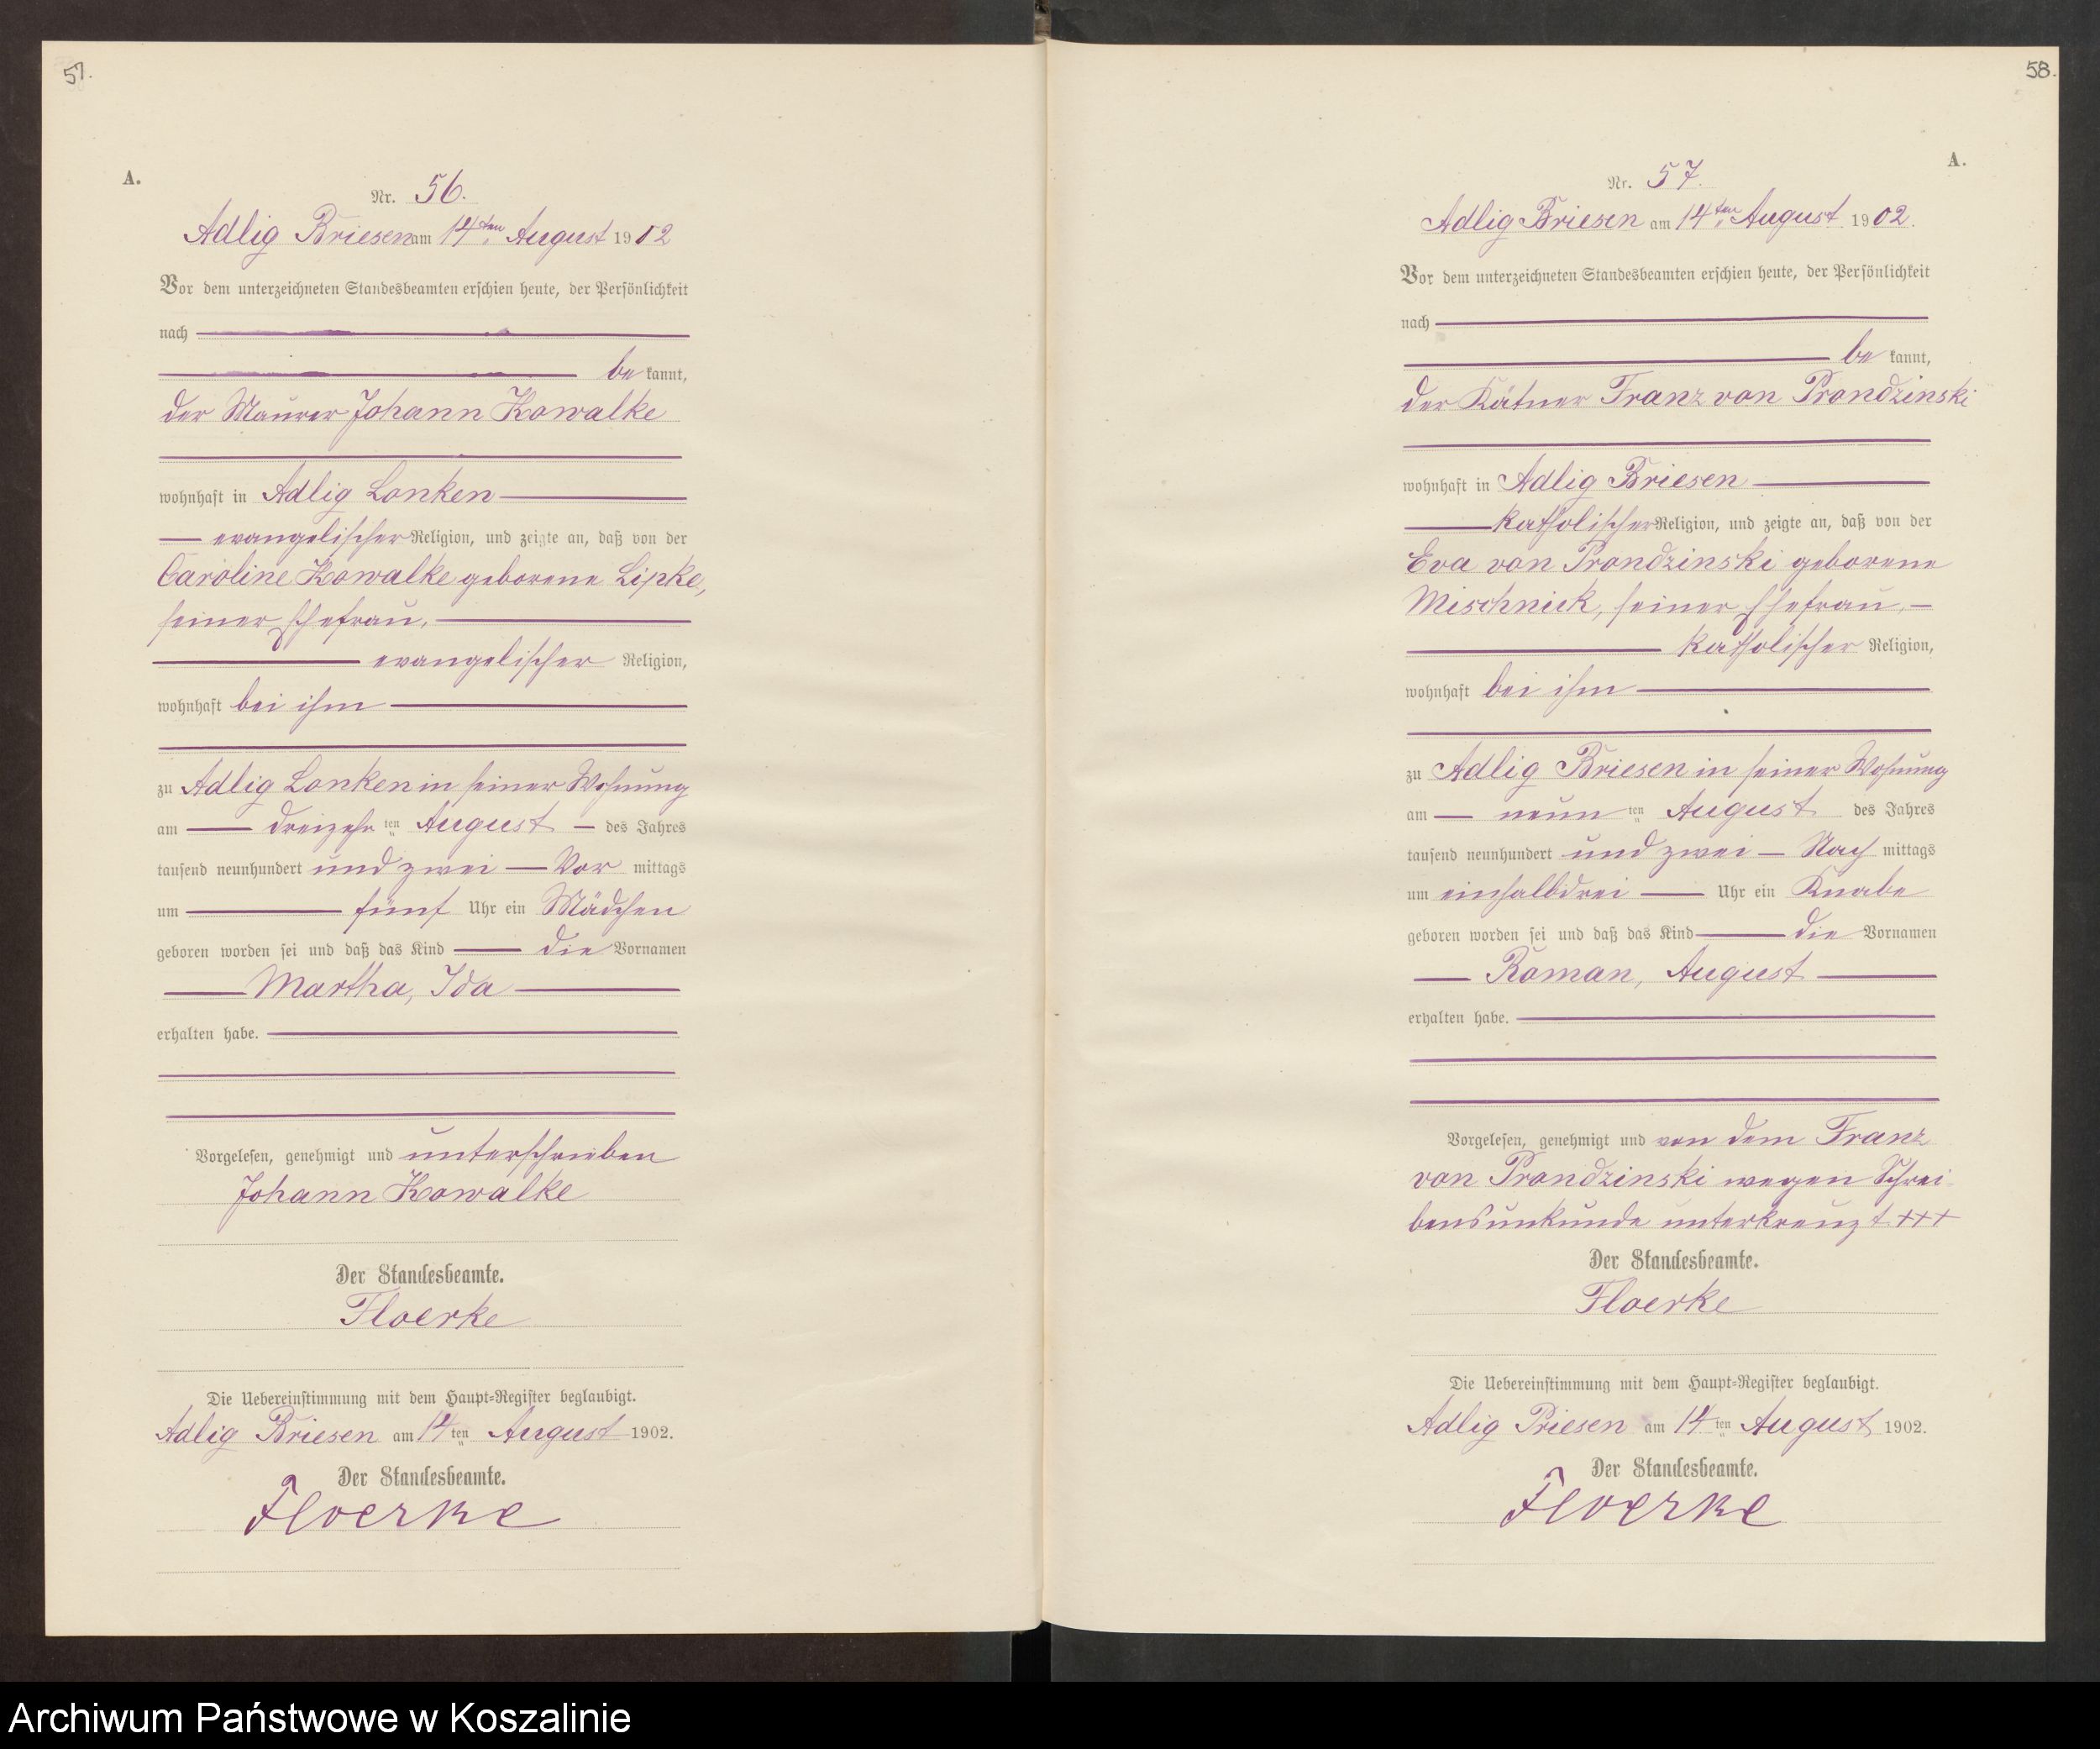 57.
A.
Nr. 56.
Adlig Briesen am 14ten August 1902
Vor dem unterzeichneten Standesbeamten erschien heute, der Persönlichkeit
nach
be kannt,
der Maurer Johann Kowalke
wohnhaft in Adlig Lonken
evangelischer Religion, und zeigte an, daß von der
Caroline Kowalke geborene Lipke,
seiner Ehefrau,
evangelischer Religion,
wohnhaft bei ihm
zu Adlig Lonken in seiner Wohnung
am dreizehn ten August des Jahres
tausend neunhundert und zwei Vor mittags
um fünf Uhr ein Mädchen
geboren worden sei und daß das Kind die Vornamen
Martha, Ida
erhalten habe.
Vorgelesen, genehmigt und unterschrieben
Johann Kowalke
Der Standesbeamte.
Floerke
Die Uebereinstimmung mit dem Haupt-Register beglaubigt.
Adlig Briesen am 14ten August 1902.
Der Standesbeamte.
Floerke
58.
A.
Nr. 57.
Adlig Briesen am 14ten August 1902.
Vor dem unterzeichneten Standesbeamten erschien heute, der Persönlichkeit
nach
be kannt,
der Kätner Franz von Prondzinski
wohnhaft in Adlig Briesen
katholischer Religion, und zeigte an, daß von der
Eva von Prondzinski geborene
Mischnick, seiner Ehefrau,
katholischer Religion,
wohnhaft bei ihm
zu Adlig Briesen in seiner Wohnung
am neun ten August des Jahres
tausend neunhundert und zwei Nach mittags
um einhalbdrei Uhr ein Knabe
geboren worden sei und daß das Kind die Vornamen
Roman, August
erhalten habe.
Vorgelesen, genehmigt und von dem Franz
von Prondzinski wegen Schrei-
bensunkunde unterkreuzt +++
Der Standesbeamte.
Floerke
Die Uebereinstimmung mit dem Haupt-Register beglaubigt.
Adlig Priesen am 14ten August 1902.
Der Standesbeamte.
Floerke
Archiwum Państwowe w Koszalinie